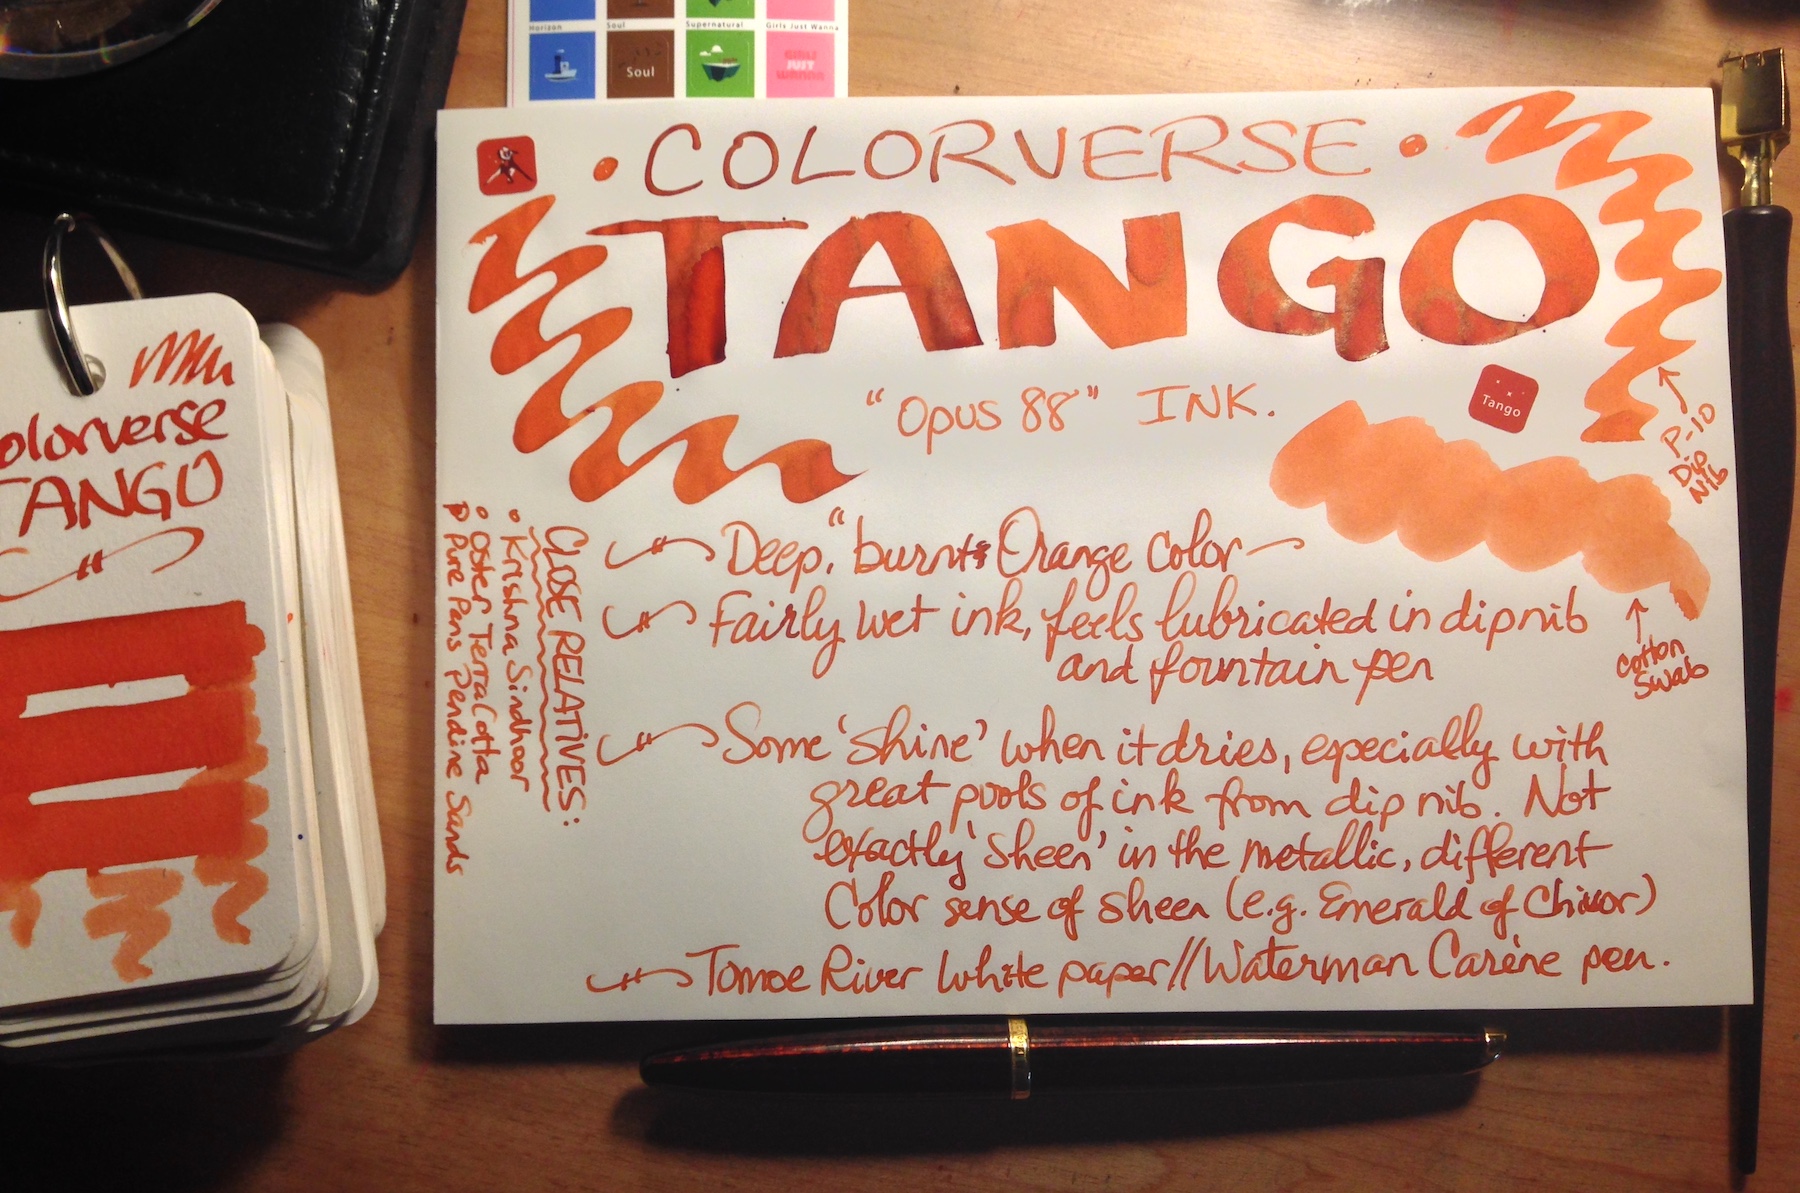 Horizon Soul Supernatural Girls Just Wanna
Soul
GIRLS
JUST
WANNA
• COLORVERSE •
TANGO
"Opus 88" INK.
Tango
P-10
Dip
Nib
Cotton
Swab
Deep, "burnt" Orange color
Fairly wet ink, feels lubricated in dip nib
and fountain pen
Some 'shine' when it dries, especially with
great pools of ink from dip nib. Not
exactly 'sheen' in the metallic, different
Color sense of sheen (e.g. Emerald of Chivor)
Tomoe River White paper//Waterman Carène pen.
CLOSE RELATIVES:
• Krishna Sindhoor
• Oster Terra Cotta
• Pure Pens Pendine Sands
olorverse
TANGO